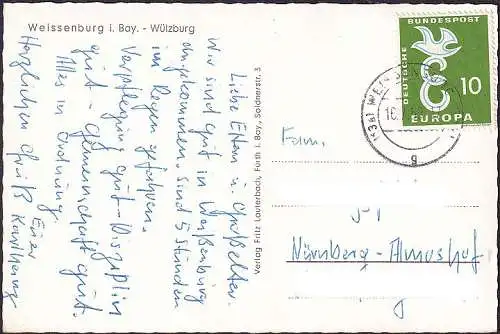 Weissenburg i. Bay. - Wülzburg
Liebe Eltern u. Großelter.
Wir sind gut in Weißenburg
angekommen. Sind 5 Stunden
im Regen gefahren.
Verpflegung gut - Disziplin
gut - Gemeinschaft gut.
Alles in Ordnung.
Herzlichen Gruß Euer
Karlheinz
Verlag Fritz Lauterbach, Fürth i. Bay., Soldnerstr. 3
DEUTSCHE
BUNDESPOST
10
EUROPA
(13a) WEISSENBURG
16.
g
Fam.
Nürnberg - Almoshof